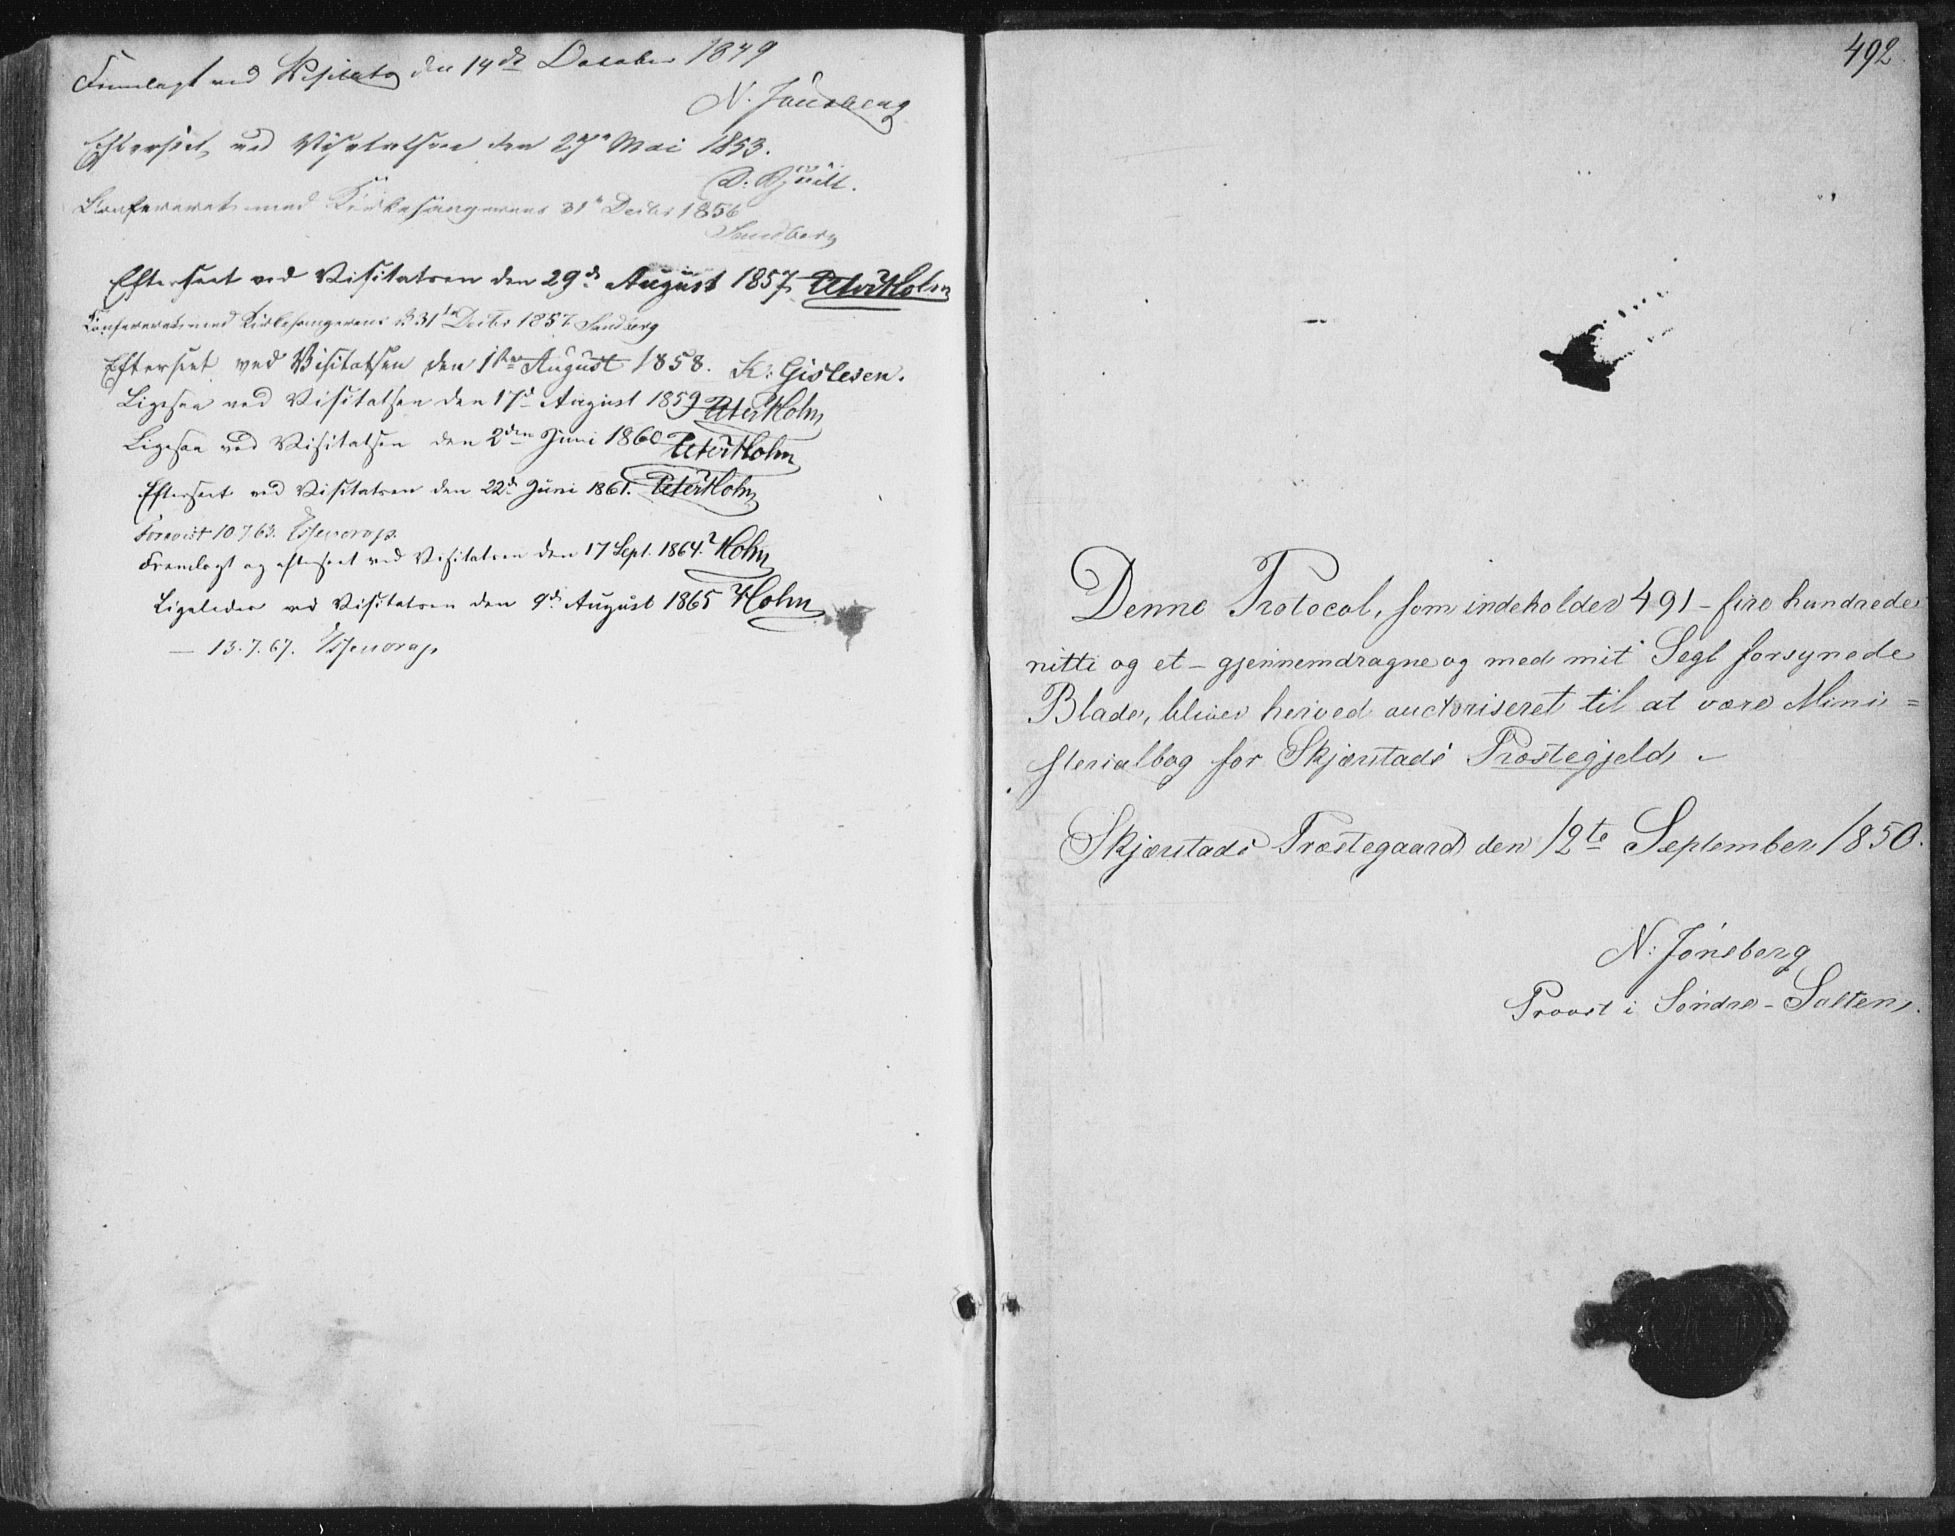 Fremlagt ved Visitats den 14de October 1849
N. Jönsberg
Efterseet ved Visitatsen den 27de Mai 1853.
Confereret med Kirkesangerens 31te Decbr 1856
Sandberg
Efterseet ved Visitatsen den 29de August 1857 Peter Holm
Confereret med Kirkesangerens d: 31te Decbr 1857 Sandberg
Efterseet ved Visitatsen den 1ste August 1858. K: Gislesen.
Ligesaa ved Visitatsen den 17de August 1859 Peter Holm
Ligesaa ved Visitatsen den 2den Juni 1860 Peter Holm
Efterseet ved Visitatsen den 22de Juni 1861. Peter Holm
Forevist 10.7.63. Essendrop.
Fremlagt og efterseet ved Visitatsen den 17 Sept. 1864. Holm
Ligeledes ved Visitatsen den 9de August 1865 Holm
— 13.7.67. Essendrop.
492.
Denne Protocol, som indeholder 491 - fire hundrede
nitti og et - gjennemdragne og med mit Segl forsynede
Blade, bliver herved auctoriseret til at være Mini=
sterialbog for Skjærstads Præstegjeld. -
Skjærstads Præstegaard den 12te September 1850.
N: Jönsberg
Provst i Söndre-Salten.